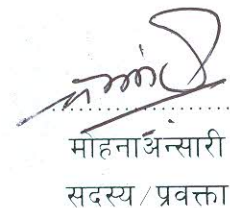 मोहनाअन्सारी
सदस्य / प्रवक्ता